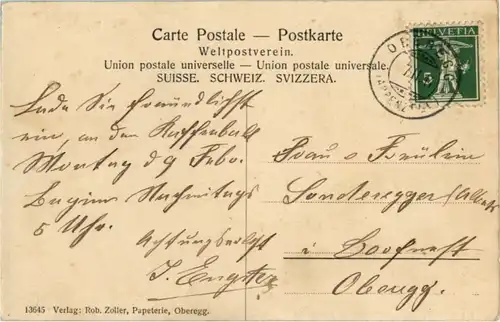 Carte Postale — Postkarte
Weltpostverein.
Union postale universelle — Union postale universale.
SUISSE. SCHWEIZ. SVIZZERA.
HELVETIA
5
Lade Sie freundlichst
ein, an den Kaffeeball
Montag d 9 Febr.
Beginn Nachmittags
5 Uhr.
Achtungsvollst
J. Engster
Frau o Fräulein
Sonderegger
i
Oberegg.
13645 Verlag: Rob. Zoller, Papeterie, Oberegg.